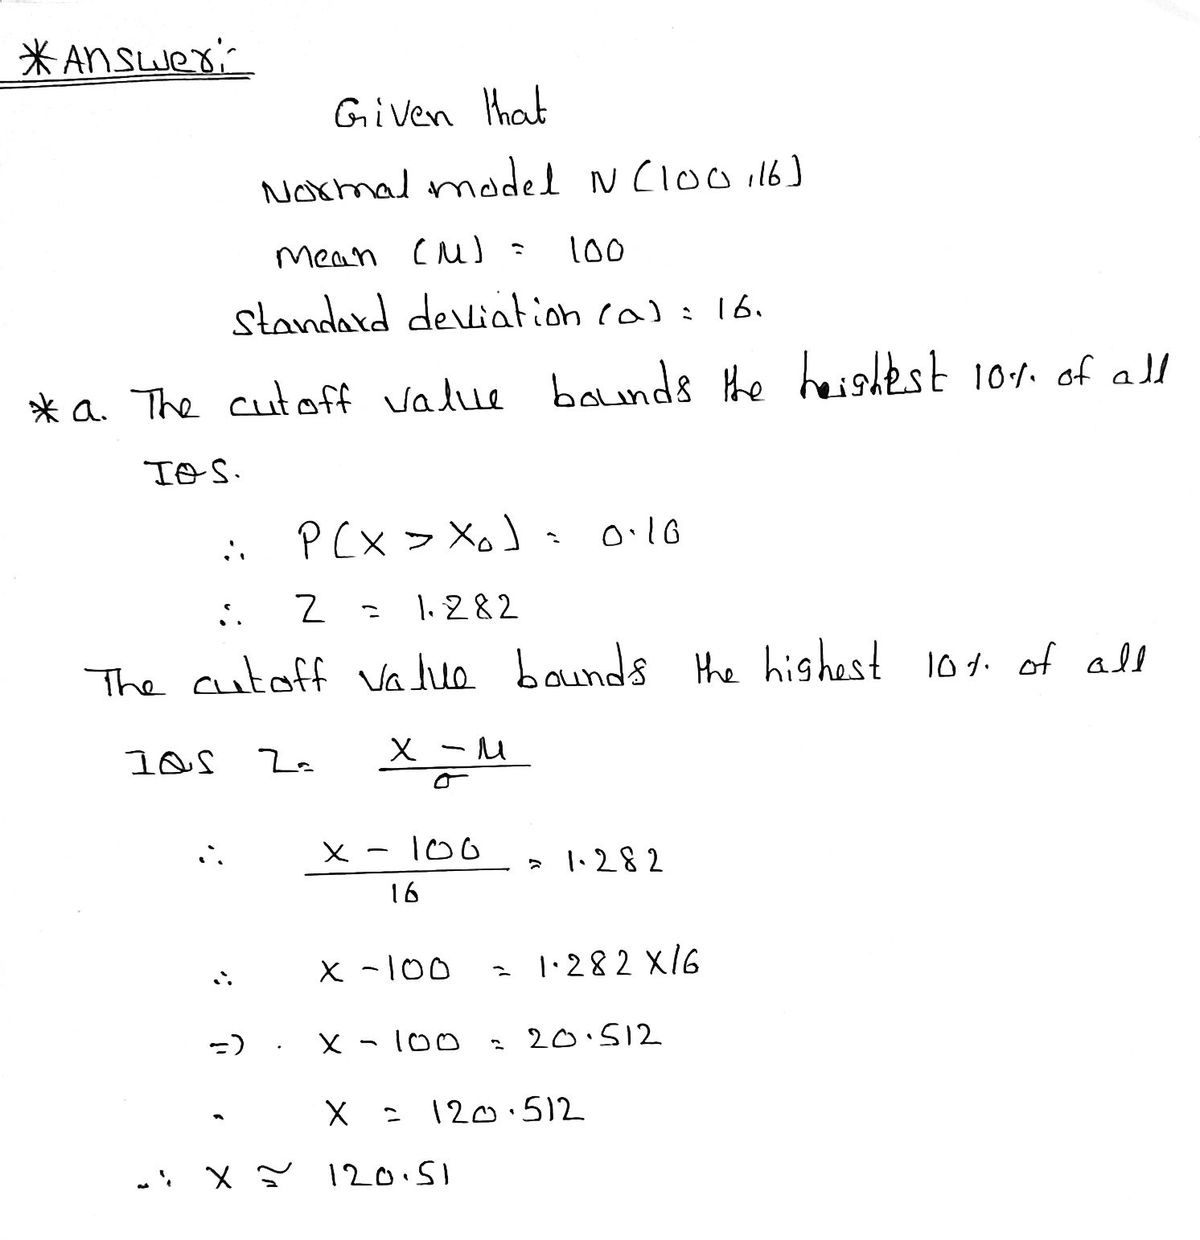 * Answer:-
Given that
Normal model N (100,16)
Mean (μ) = 100
Standard deviation (a) = 16.
* a. The cutoff value bounds the heighest 10% of all
IQS.
∴ P(X > X₀) = 0.10
∴ Z = 1.282
The cutoff value bounds the highest 10% of all
IQS Z = (X - μ)/σ
∴ (X - 100)/16 = 1.282
∴ X - 100 = 1.282 X16
=> . X - 100 = 20.512
X = 120.512
∴ X ≅ 120.51